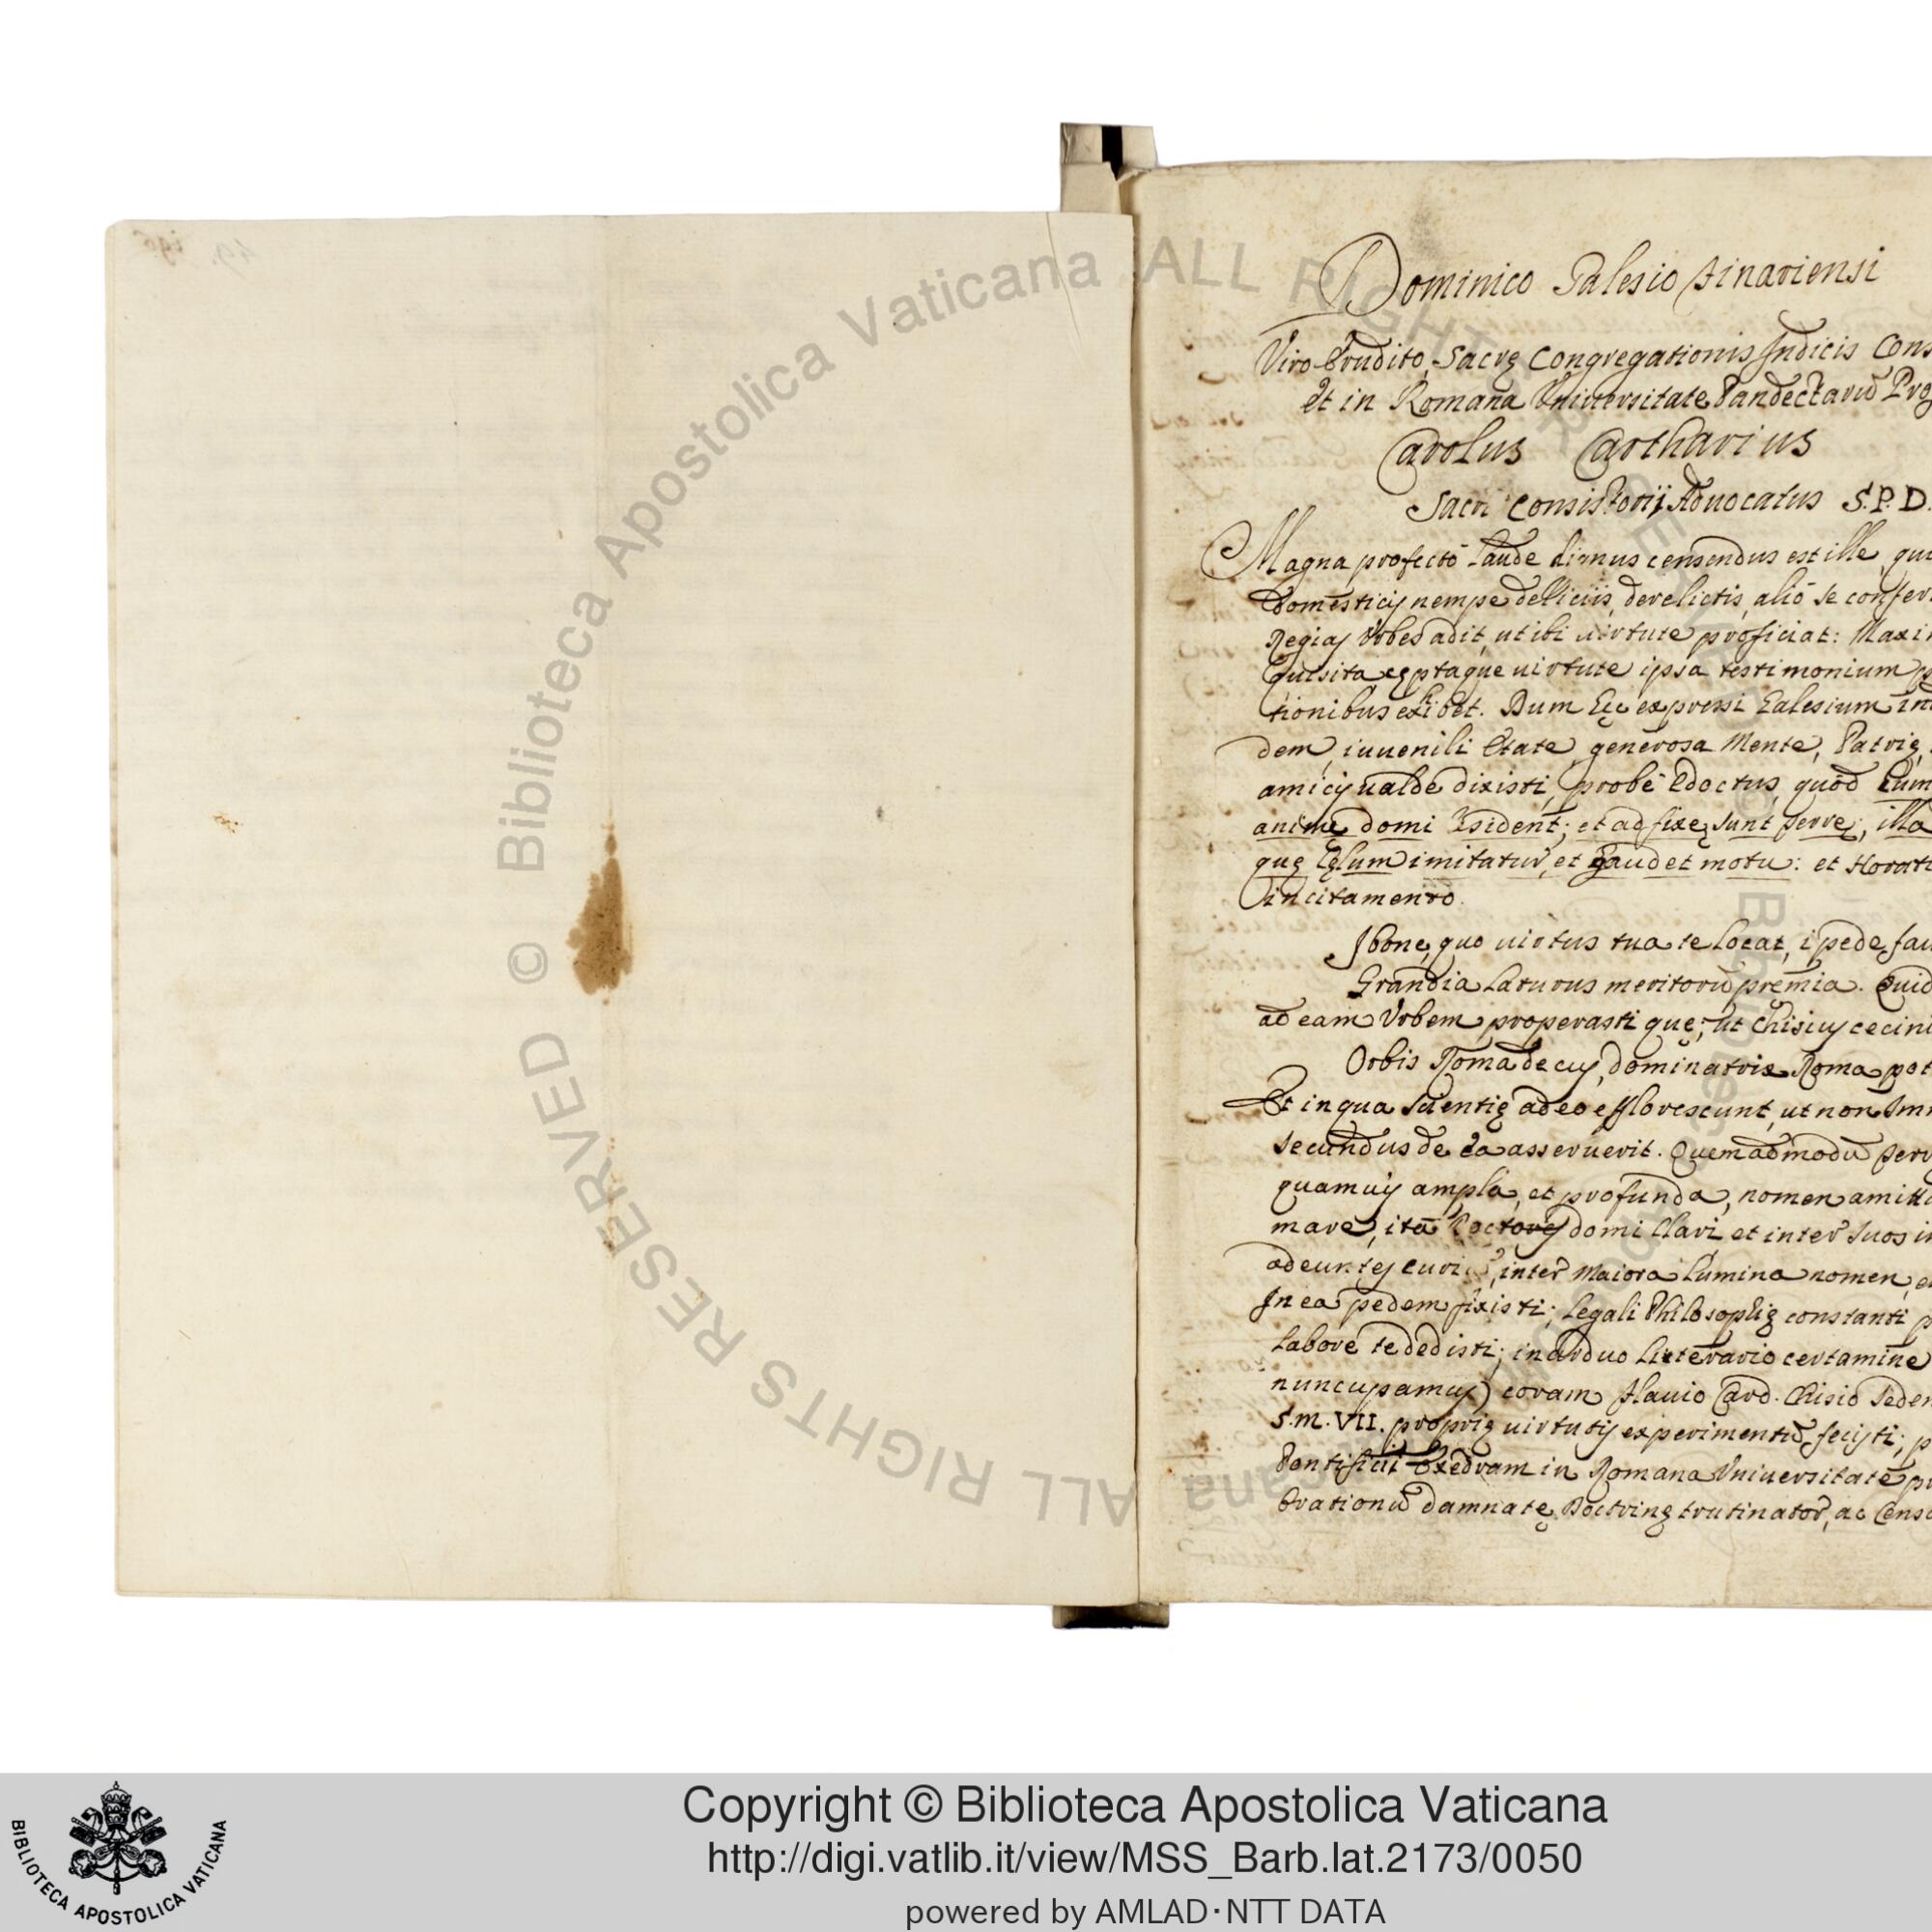 Dominico Salesio Finariensi
Viro Erudito, Sacrę Congregationis Indicis Cons
et in Romana Vniuersitate Pandectarũ Prof
Carolus Cartharius
Sacri Consistorij Aduocatus S.P.D.
Magna profectò laude dignus censendus est ille, qui
domesticis nempe delliciis, derelictis, aliò se confer
Regias Vrbes adit, ut ibi uirtute proficiat: Maxi
quisita eęptaque uirtute ipsa testimonium p
tionibus exibet. Dum hęc expressi Salesium in
dem, iuuenili Etate, generosa Mente, Patrię,
amicis ualde dixisti, probè Edoctus, quòd hum
animę domi Resident; et adfixę sunt terrę; illa
quę Cęlum imitatur, et gaudet motu: et Horati
incitamento.
I bone, quo uirtus tua te uocat, i pede fau
Grandia laturus meritorũ premia. Quid
ad eam Vrbem, properasti quę; ut Chisius cecini
Orbis Roma decus, dominatrix Roma pot
Et in qua scientię adeo efflorescunt, ut non Imm
secundus de ea asseruerit. Quemadmodũ
quamuis ampla, et profunda, nomen amitt
mare, ita Doctores domi Clari, et inter suos in
adeuntes inter Maiora lumina nomen, e
In ea pedem fixisti; Legali Philosophię constanti p
labore te dedisti; in arduo litterario certamine
nuncupamus) coram Flauio Card. Chisio Seden
S.M. VII. proprię uirtutis experimentũ fecisti; p
Pontificii Exedram in Romana Vniuersitate p
Orationũ damnatę Doctrinę trutinator, ac Censo
© Biblioteca Apostolica Vaticana ALL RIGHTS RESERVED
Copyright © Biblioteca Apostolica Vaticana
http://digi.vatlib.it/view/MSS_Barb.lat.2173/0050
powered by AMLAD·NTT DATA
BIBLIOTECA APOSTOLICA VATICANA